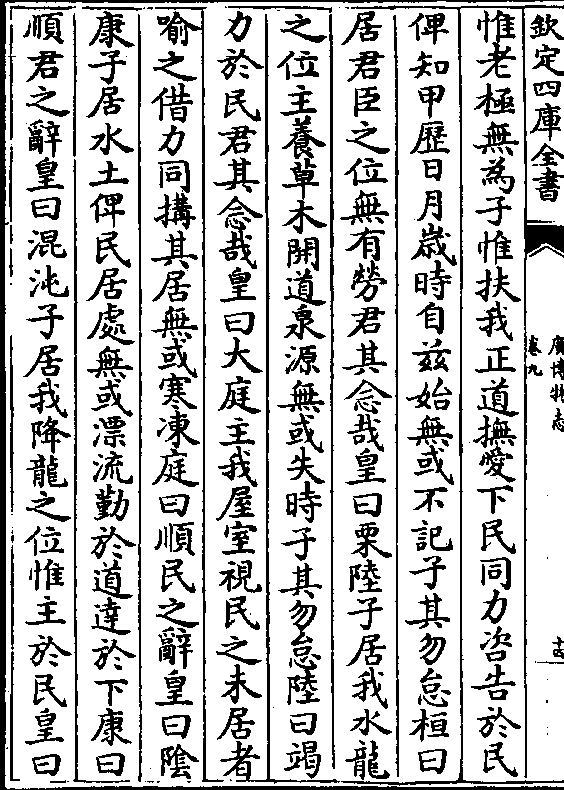 欽定四庫全書
廣博物志
卷九
十四
惟老極無為子惟扶我正道撫愛下民同力咨告於民
俾知甲歷日月嵗時自兹始無或不記子其勿怠桓曰
居君臣之位無有勞君其念哉皇曰栗陸子居我水龍
之位主養草木開道泉源無或失時子其勿怠陸曰竭
力於民君其念哉皇曰大庭主我屋室視民之未居者
喻之借力同搆其居無或寒凍庭曰順民之辭皇曰陰
康子居水土俾民居處無或漂流勤於道達於下康曰
順君之辭皇曰混沌子居我降龍之位惟主於民皇曰